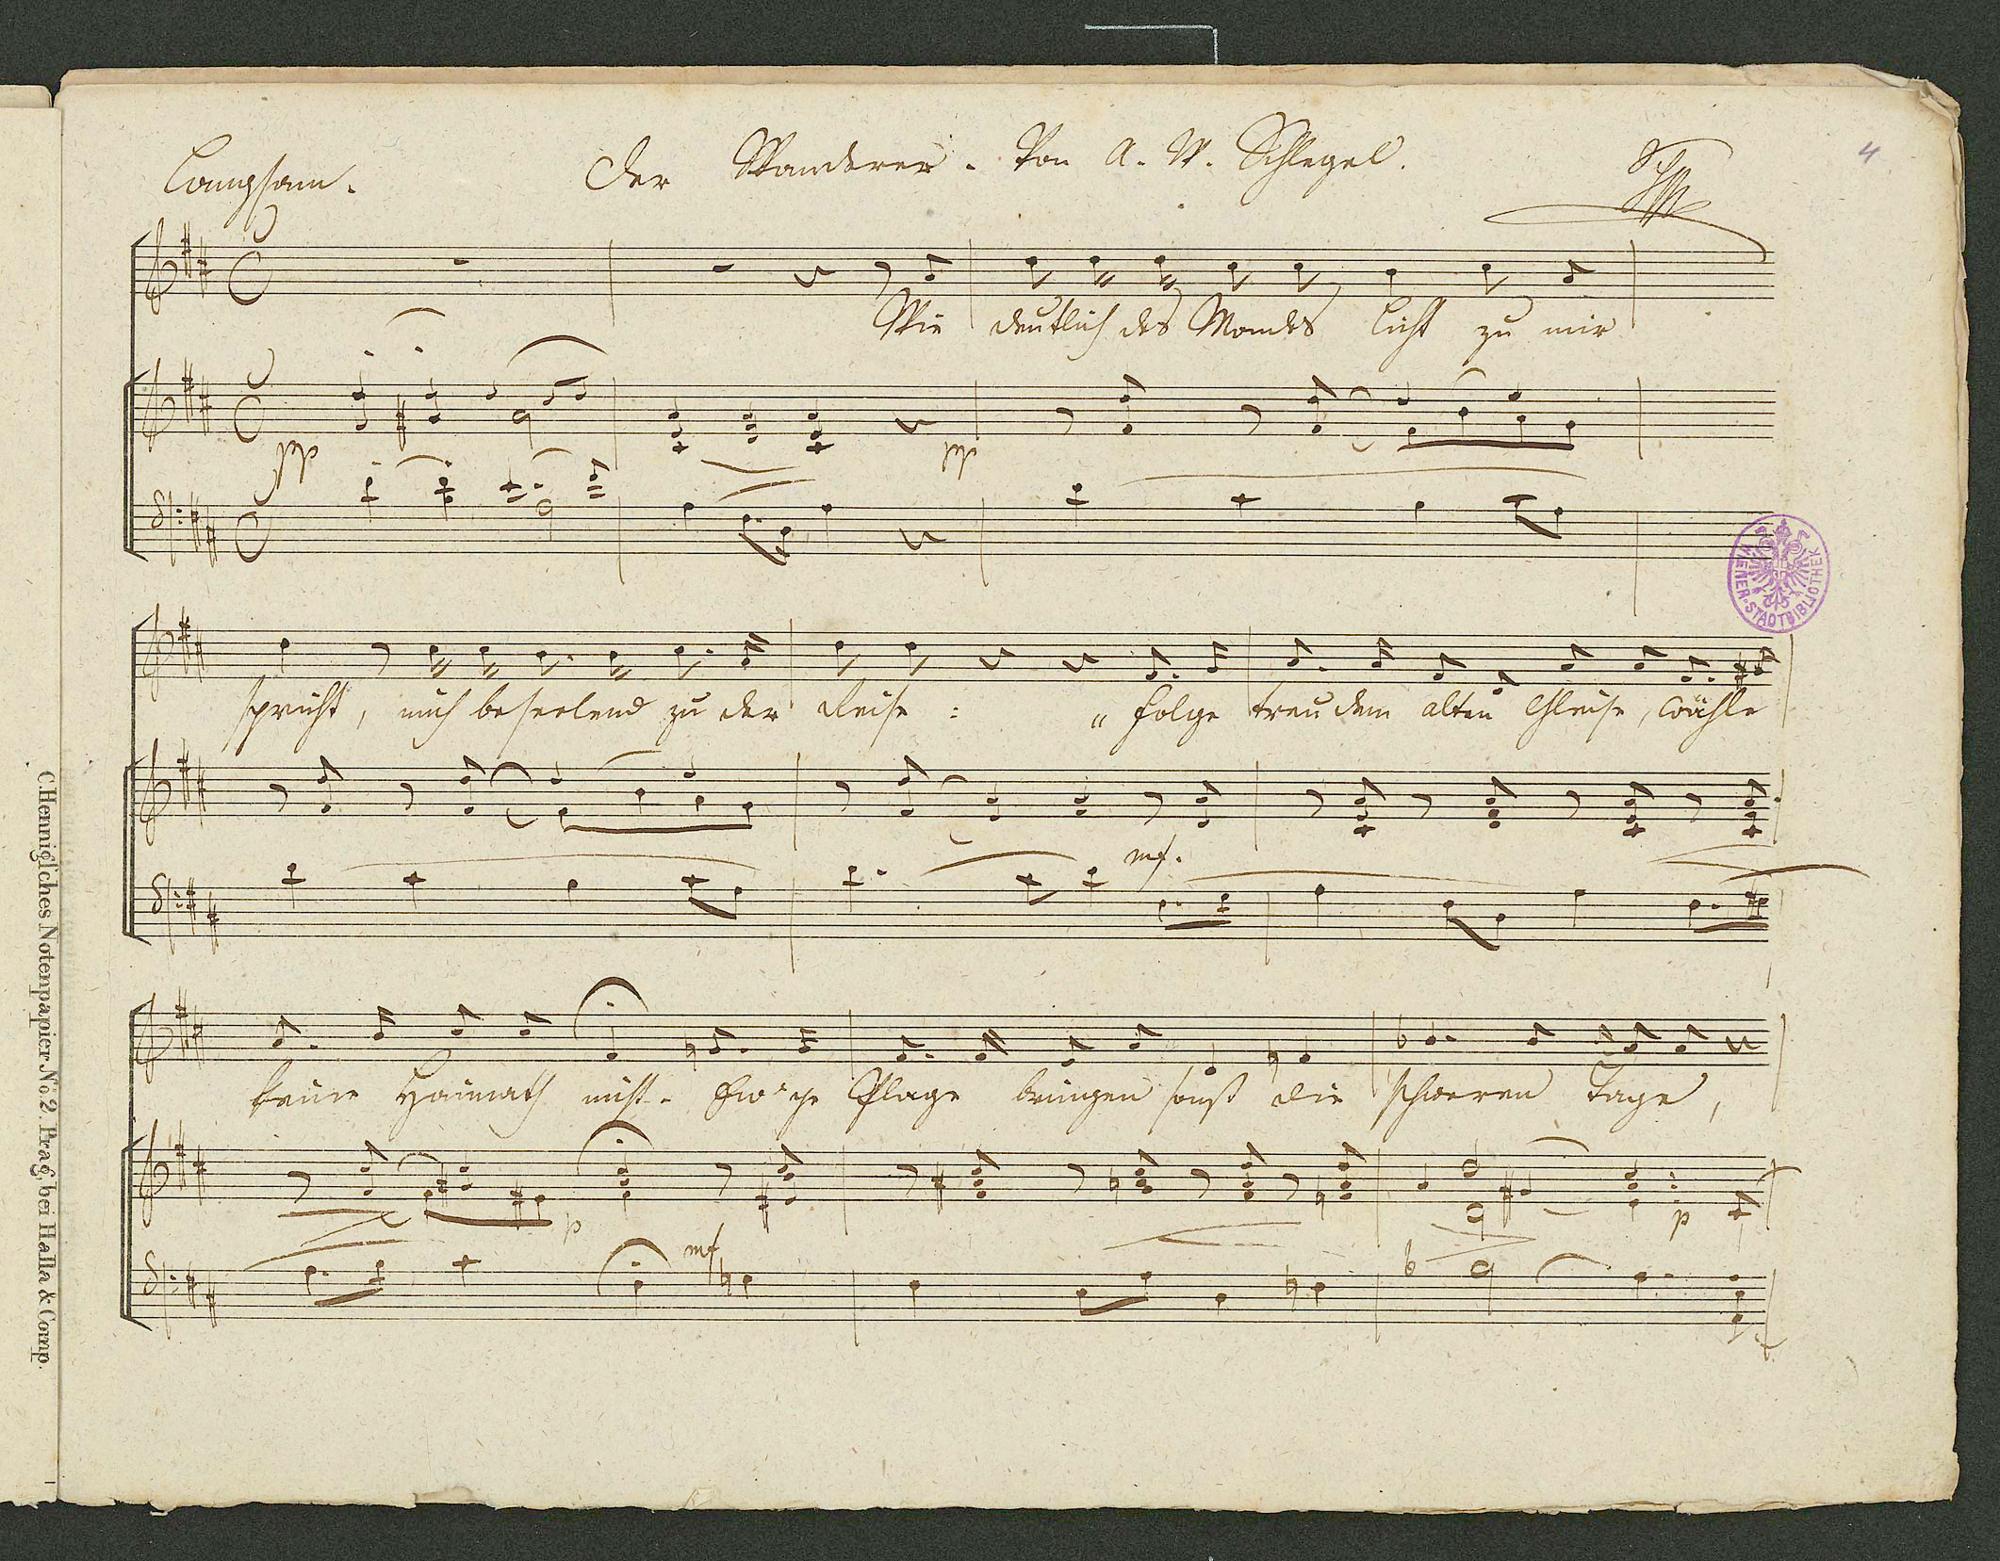 Langsam. Der Wanderer. Von A. W. Schlegel.
4
Wie deutlich des Mondes Licht zu mir
pp pp
WIENER STADTBIBLIOTHEK
spricht, mich beseelend zu der Reise:
„Folge treu dem alten Gleise, wähle
mf.
keine Heimath nicht. Ew'ge Plage bringen sonst die schweren Tage,
p p
mf
C. Hennigl'ches Notenpapier No. 2 Prag, bei Halla & Comp.